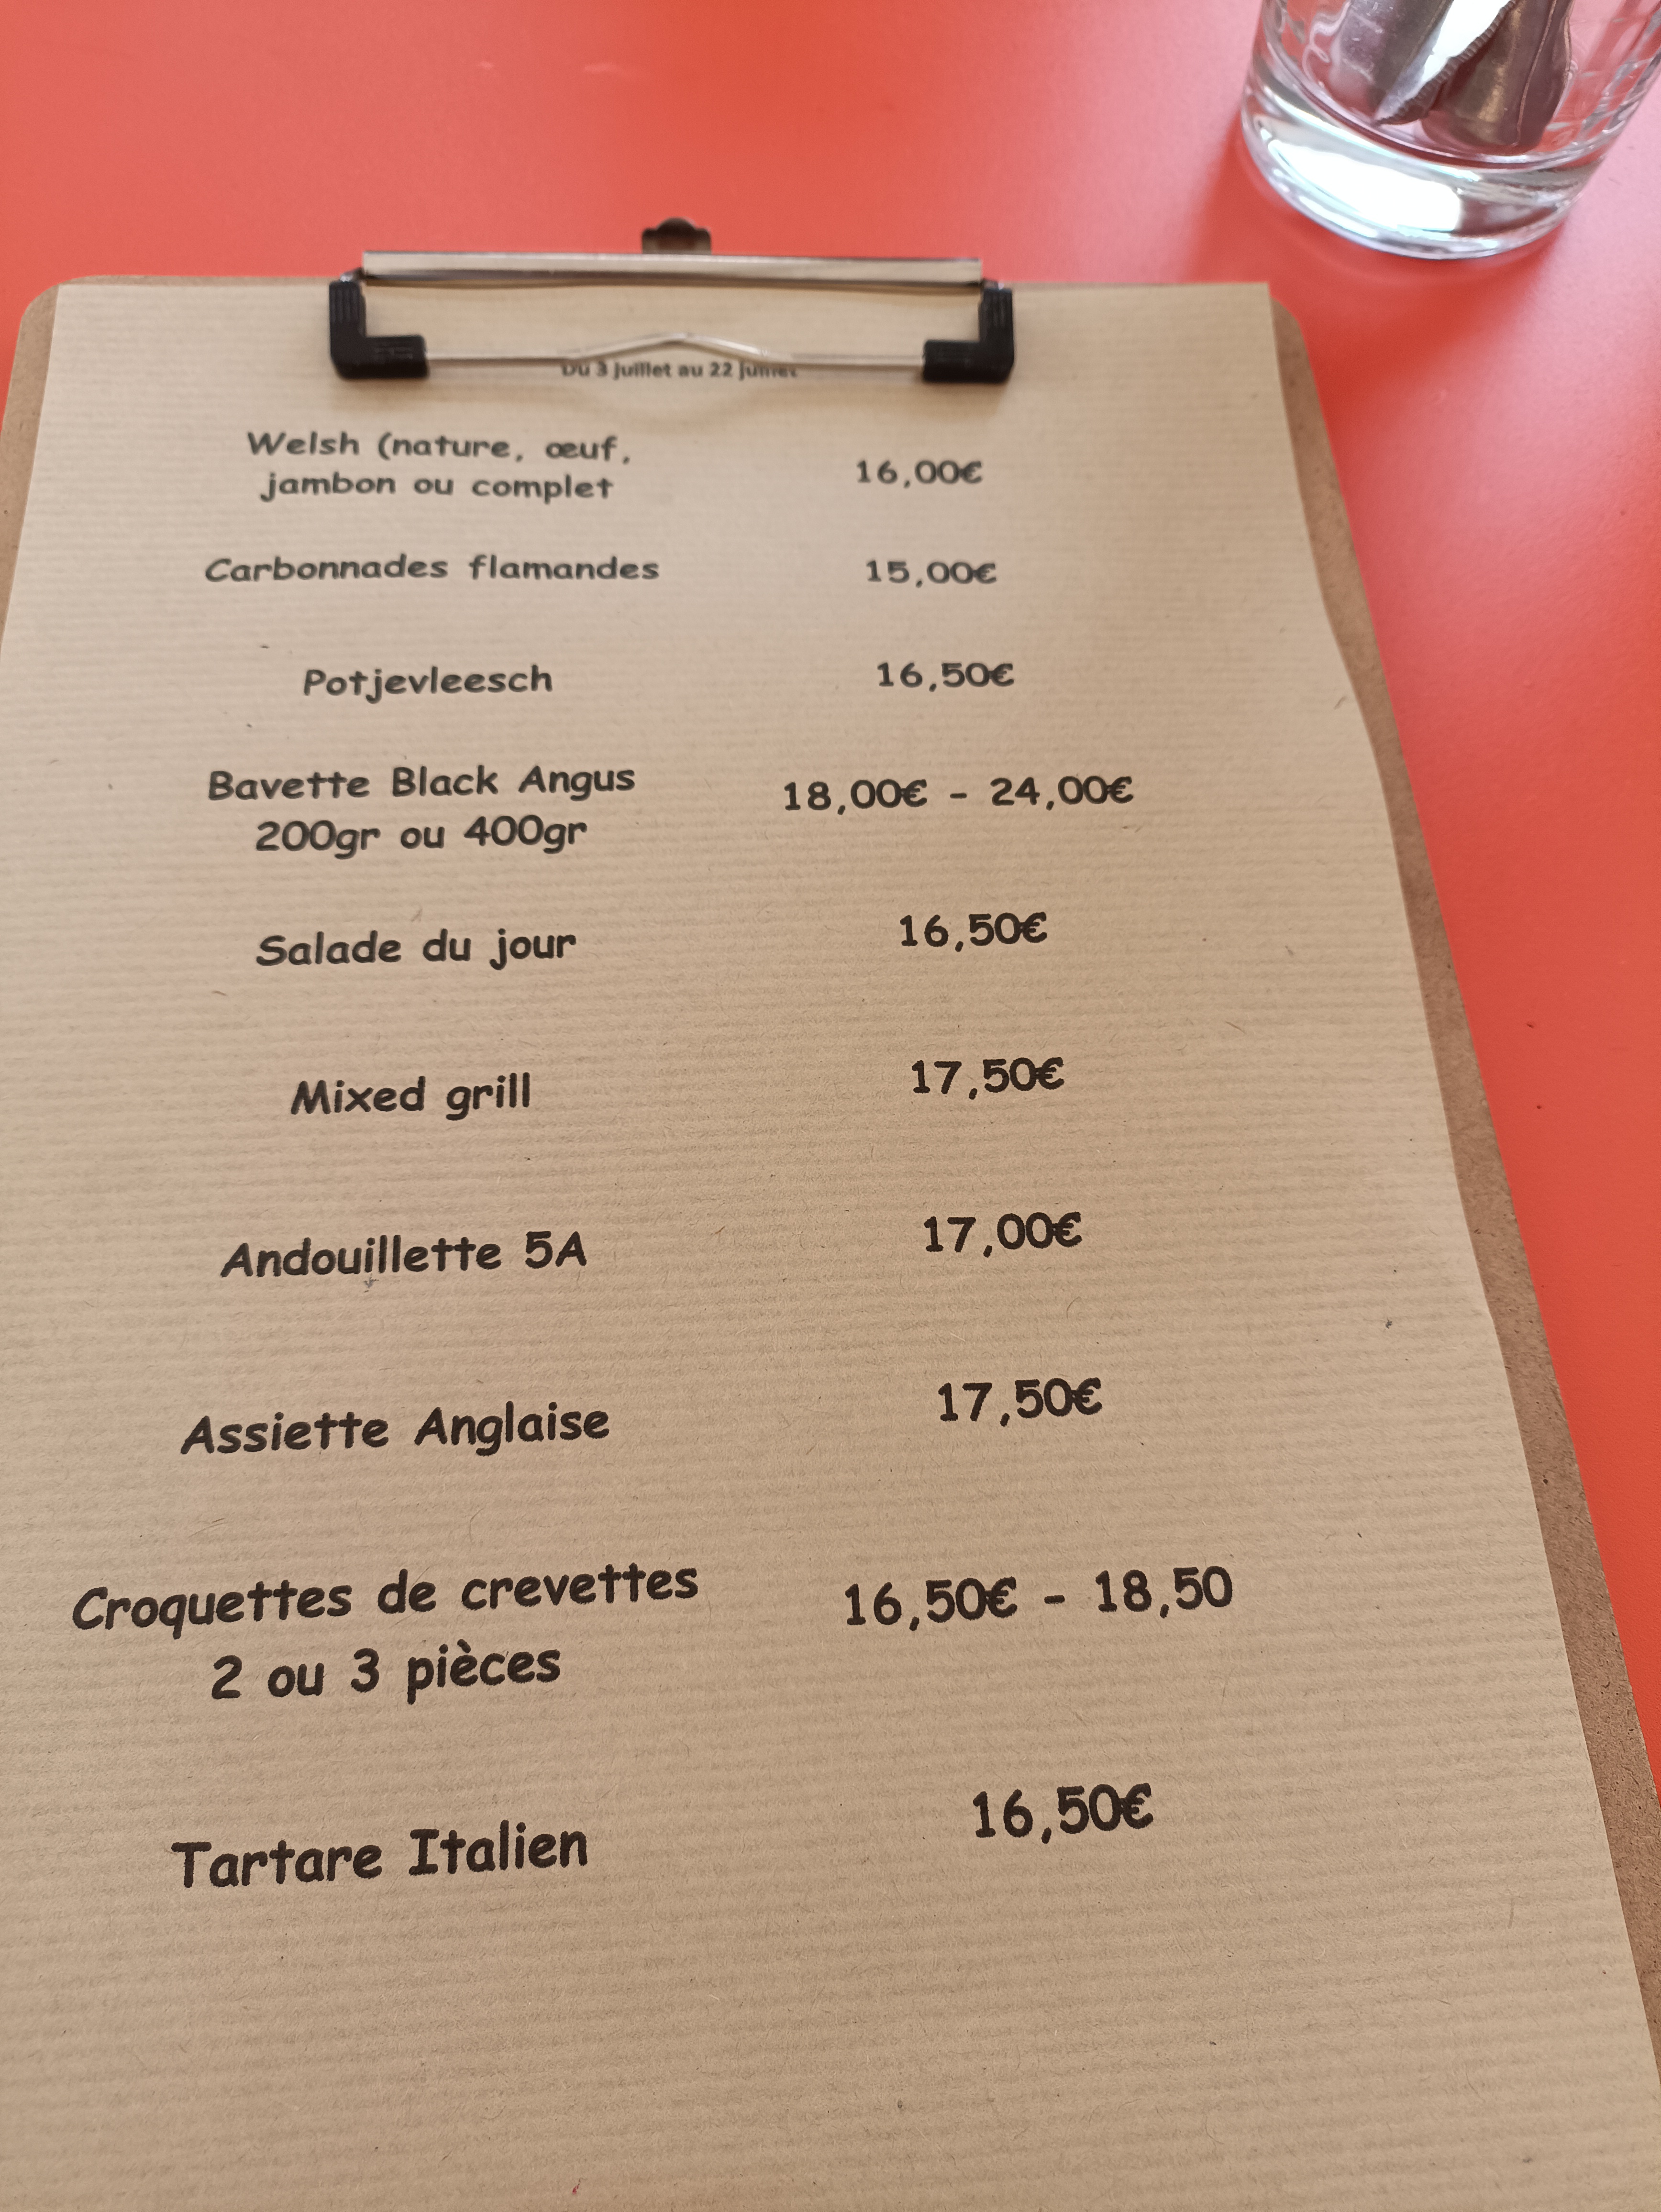 Du 3 juillet au 22 juillet
Welsh (nature, œuf,
jambon ou complet
16,00€
Carbonnades flamandes
15,00€
Potjevleesch
16,50€
Bavette Black Angus
200gr ou 400gr
18,00€ - 24,00€
Salade du jour
16,50€
Mixed grill
17,50€
Andouillette 5A
17,00€
Assiette Anglaise
17,50€
Croquettes de crevettes
2 ou 3 pièces
16,50€ - 18,50
Tartare Italien
16,50€